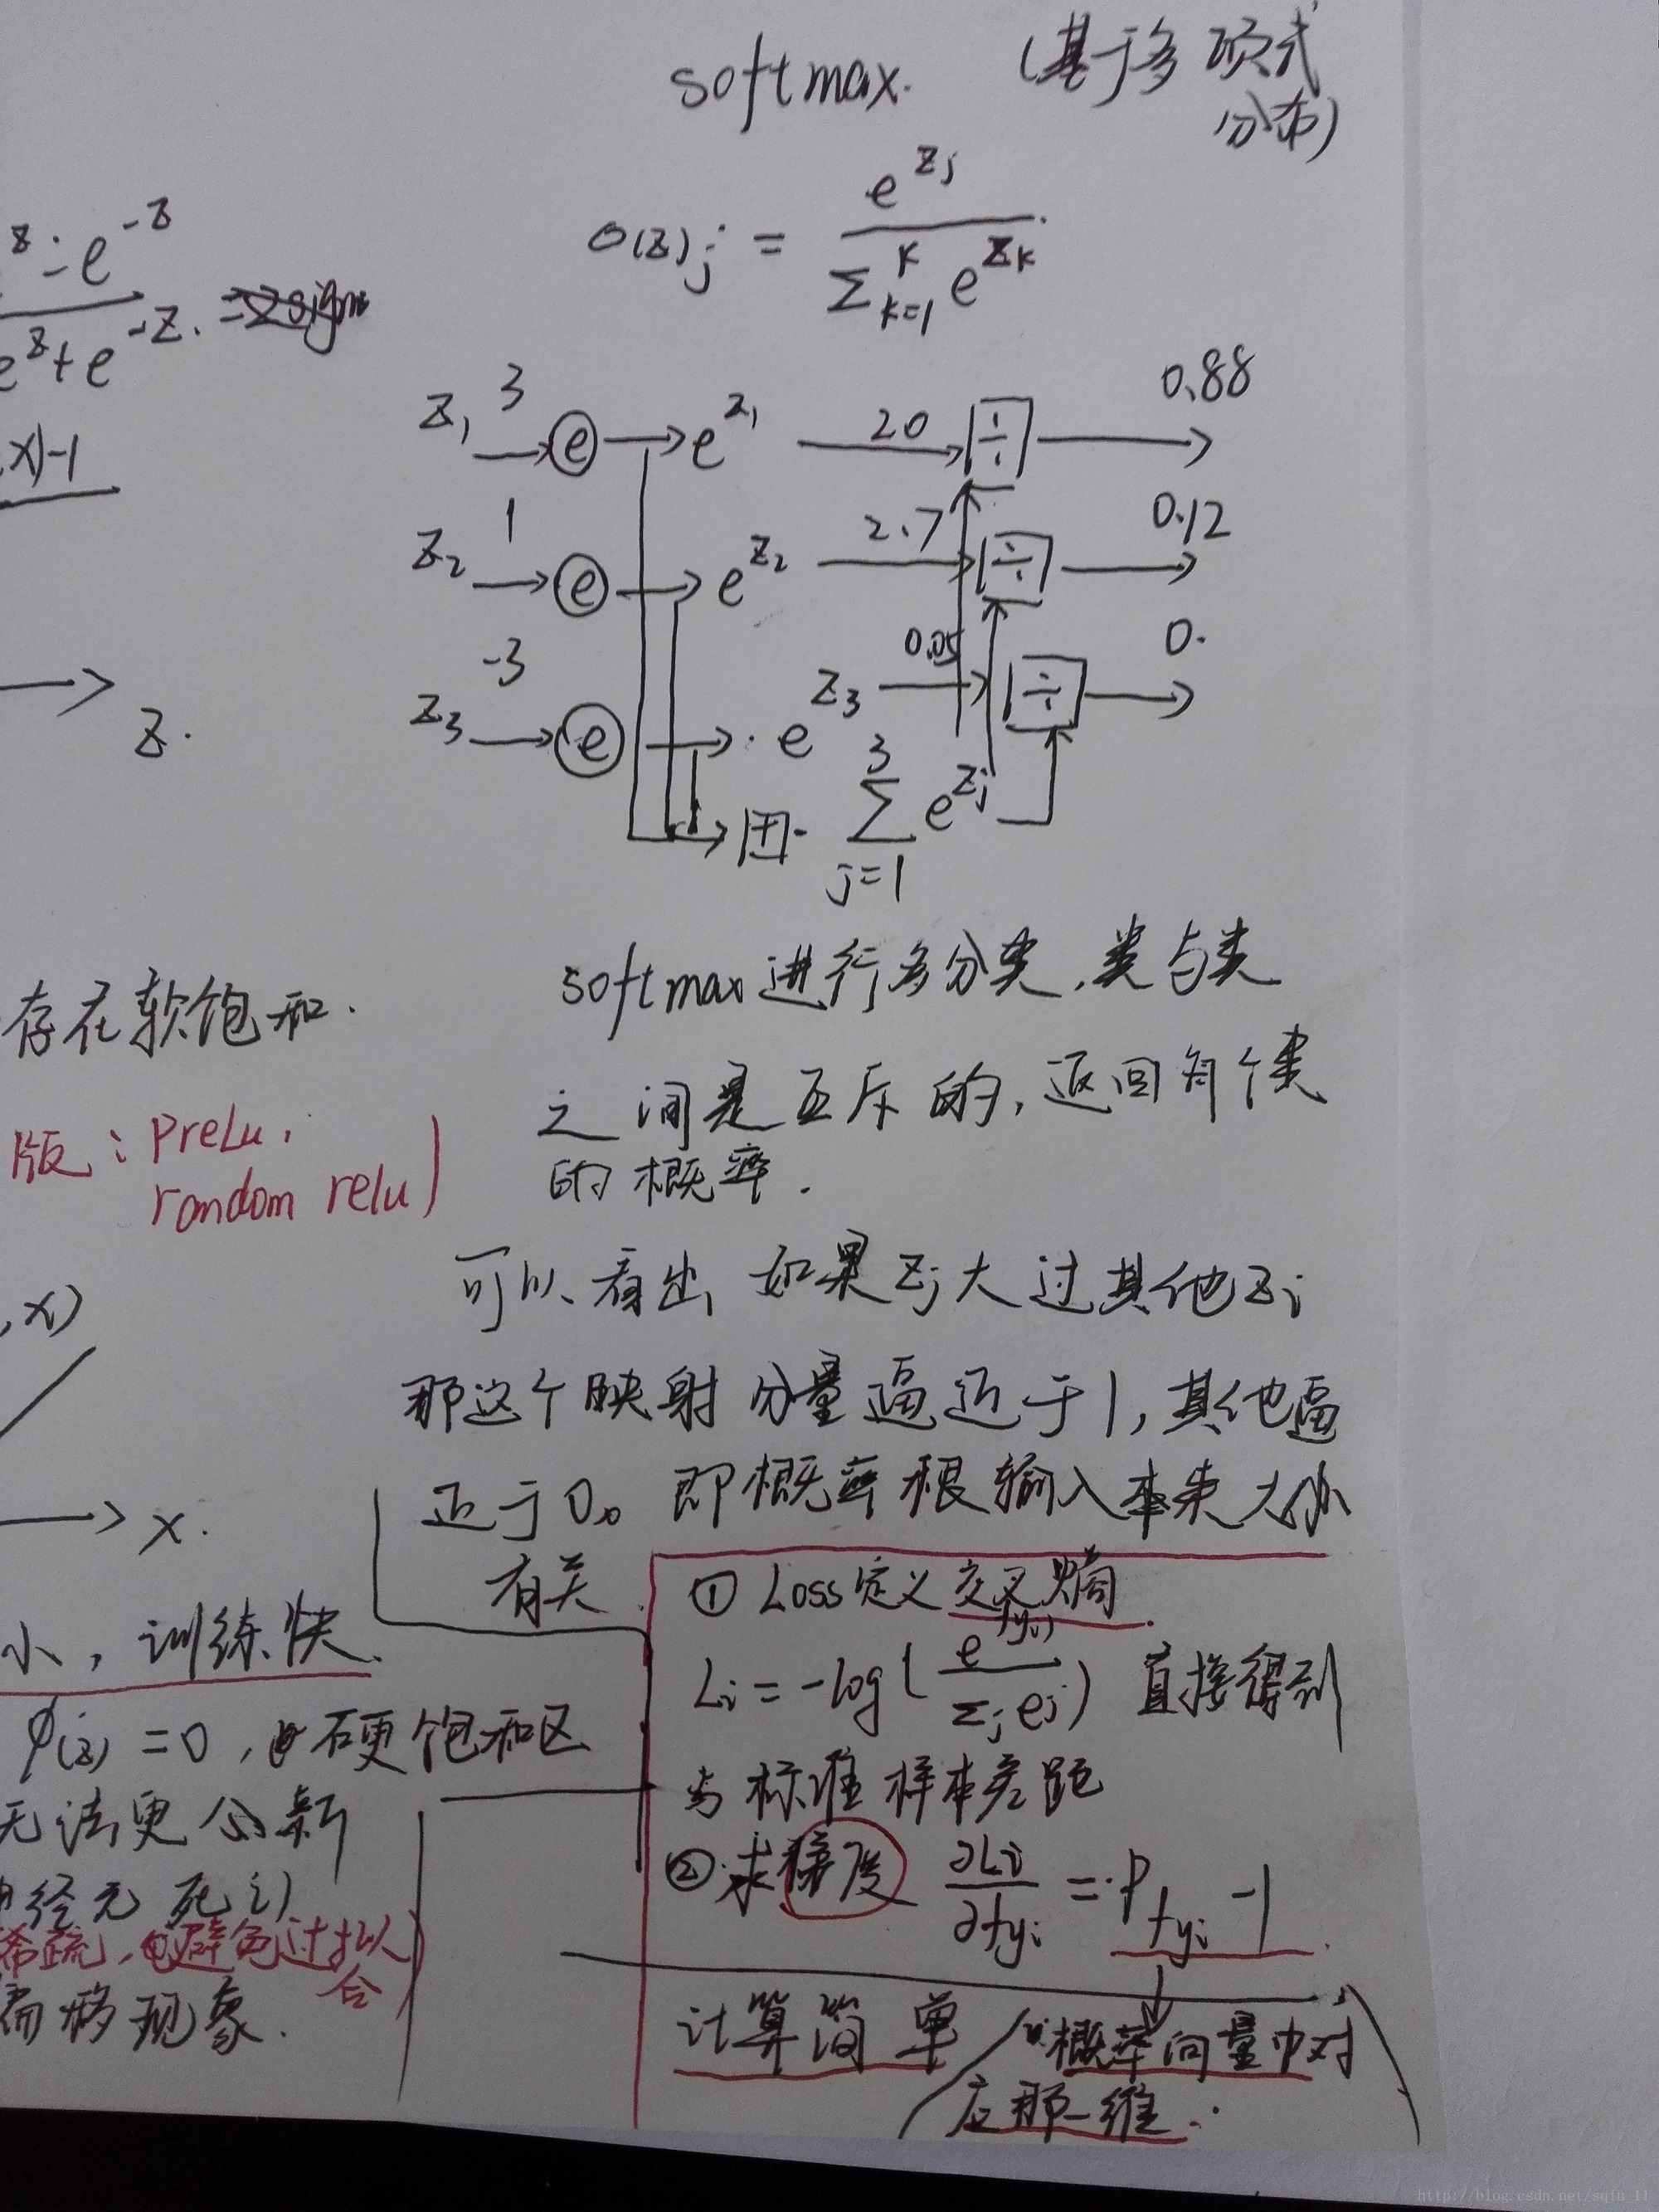 softmax. (基于多项式
分布)
σ(z)j = e^{zj} / Σ_{k=1}^{K} e^{zk}
e^{-z}
e^z + e^{-z}.
x)-1
z1 3 → e → e^{z1} → 20 ÷ → 0.88
z2 1 → e → e^{z2} → 2.7 ÷ → 0.12
z3 -3 → e → e^{z3} → 0.05 ÷ → 0.
+ Σ_{j=1}^{3} e^{zj}
z.
存在软饱和.
版: PreLu,
random relu)
,x)
x.
小, 训练快.
φ(z) = 0, 硬饱和区
无法更新
经元死亡)
稀疏, 避免过拟
合)
偏移现象.
softmax 进行多分类, 类与类
之间是互斥的, 返回每个类
的概率.
可以看出 如果zj大过其他zi
那这个映射分量逼近于1, 其他逼
近于0。即概率根输入本来大小
有关.
① Loss定义交叉熵.
Li = -log( e^{fyi} / Σj ej ) 直接得到
与标准样本差距
② 求梯度 ∂Li/∂fyi = P_{fyi} - 1
计算简单
概率向量中对
应那一维.
http://blog.csdn.net/sqiu_11